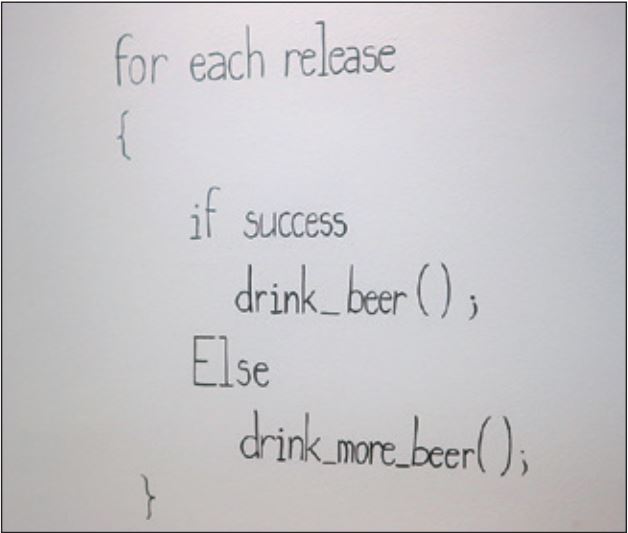 for each release
{
if success
drink_beer();
Else
drink_more_beer();
}